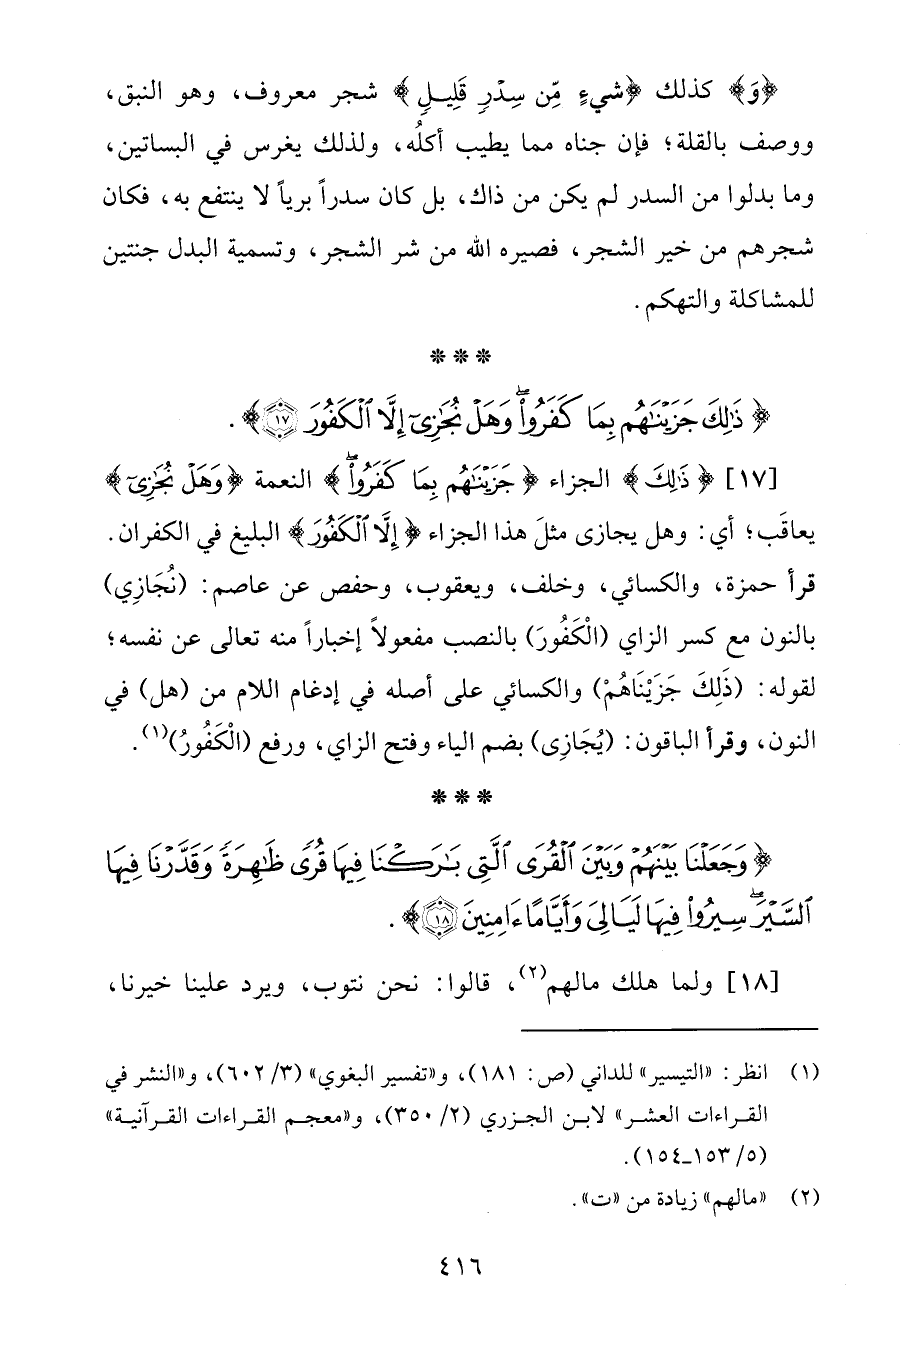 ﴿وَ﴾ كذلك ﴿شَيءٍ مِّن سِدْرٍ قَلِيلٍ﴾ شجر معروف، وهو النبق،
ووصف بالقلة؛ فإن جناه مما يطيب أكلُه، ولذلك يغرس في البساتين،
وما بدلوا من السدر لم يكن من ذاك، بل كان سدراً برياً لا ينتفع به، فكان
شجرهم من خير الشجر، فصيره الله من شر الشجر، وتسمية البدل جنتين
للمشاكلة والتهكم.
* * *
﴿ذَٰلِكَ جَزَيْنَٰهُم بِمَا كَفَرُوا۟ۖ وَهَلْ نُجَٰزِىٓ إِلَّا ٱلْكَفُورَ ١٧﴾.
[١٧] ﴿ذَٰلِكَ﴾ الجزاء ﴿جَزَيْنَٰهُم بِمَا كَفَرُوا۟ۖ﴾ النعمة ﴿وَهَلْ نُجَٰزِىٓ﴾
يعاقَب؛ أي: وهل يجازى مثلَ هذا الجزاء ﴿إِلَّا ٱلْكَفُورَ﴾ البليغ في الكفران.
قرأ حمزة، والكسائي، وخلف، ويعقوب، وحفص عن عاصم: (نُجَازِي)
بالنون مع كسر الزاي (الْكَفُورَ) بالنصب مفعولاً إخباراً منه تعالى عن نفسه؛
لقوله: (ذَلِكَ جَزَيْنَاهُمْ) والكسائي على أصله في إدغام اللام من (هل) في
النون، وقرأ الباقون: (يُجَازِى) بضم الياء وفتح الزاي، ورفع (الْكَفُورُ)(١).
* * *
﴿وَجَعَلْنَا بَيْنَهُمْ وَبَيْنَ ٱلْقُرَى ٱلَّتِى بَٰرَكْنَا فِيهَا قُرًى ظَٰهِرَةً وَقَدَّرْنَا فِيهَا
ٱلسَّيْرَۖ سِيرُوا۟ فِيهَا لَيَالِىَ وَأَيَّامًا ءَامِنِينَ ١٨﴾.
[١٨] ولما هلك مالهم(٢)، قالوا: نحن نتوب، ويرد علينا خيرنا،
(١) انظر: «التيسير» للداني (ص: ١٨١)، و«تفسير البغوي» (٣/ ٦٠٢)، و«النشر في
القراءات العشر» لابن الجزري (٢/ ٣٥٠)، و«معجم القراءات القرآنية»
(٥/ ١٥٣_١٥٤).
(٢) «مالهم» زيادة من «ت».
٤١٦